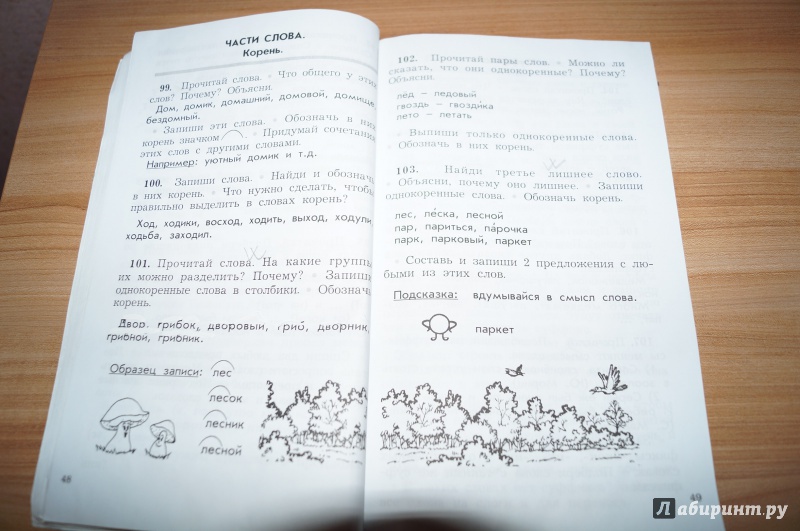 ЧАСТИ СЛОВА.
Корень.
99. Прочитай слова. • Что общего у этих
слов? Почему? Объясни.
Дом, домик, домашний, домовой, домище,
бездомный.
• Запиши эти слова. • Обозначь в них
корень значком. • Придумай сочетания
этих слов с другими словами.
Например: уютный домик и т.д.
100. Запиши слова. • Найди и обозначь
в них корень. • Что нужно сделать, чтобы
правильно выделить в словах корень?
Ход, ходики, восход, ходить, выход, ходули,
ходьба, заходил.
101. Прочитай слова. На какие группы
их можно разделить? Почему? • Запиши
однокоренные слова в столбики. • Обозначь
корень.
Двор, грибок, дворовый, гриб, дворник,
грибной, грибник.
Образец записи: лес
лесок
лесник
лесной
48
102. Прочитай пары слов. • Можно ли
сказать, что они однокоренные? Почему?
Объясни.
лёд – ледовый
гвоздь – гвоздика
лето – летать
• Выпиши только однокоренные слова.
• Обозначь в них корень.
103. Найди третье лишнее слово.
• Объясни, почему оно лишнее. • Запиши
однокоренные слова. • Обозначь корень.
лес, леска, лесной
пар, париться, парочка
парк, парковый, паркет
• Составь и запиши 2 предложения с лю-
быми из этих слов.
Подсказка: вдумывайся в смысл слова.
паркет
49
Лабиринт.ру